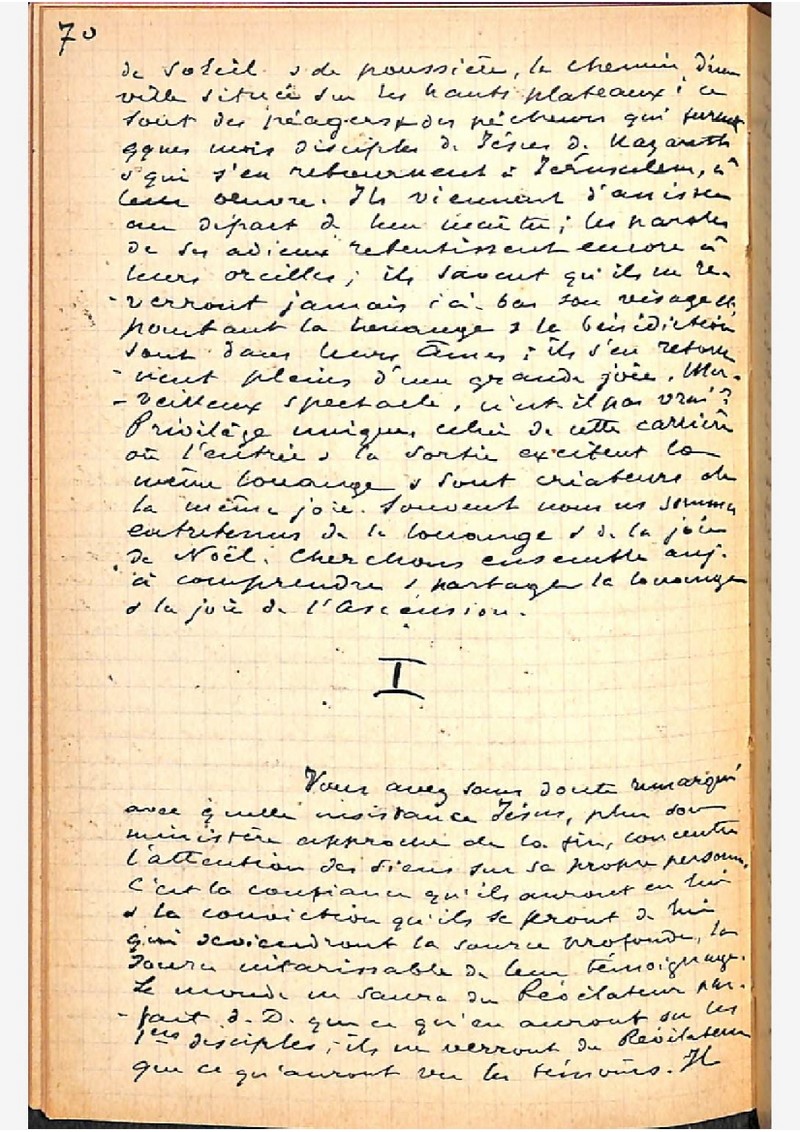 70
de soleil & de poussière, le chemin d'une
ville située sur les hauts plateaux ; ce
sont des péagers & des pécheurs qui furent
qques mois disciples de Jésus de Nazareth
& qui s'en retournent à Jérusalem, à
leur oeuvre. Ils viennent d'assister
au départ de leur maître ; les paroles
de ses adieux retentissent encore à
leurs oreilles ; ils savent qu'ils ne re-
-verront jamais ici-bas son visage &
pourtant la louange & la bénédiction
sont dans leurs âmes ; ils s'en retour
-nent pleins d'une grande joie. Mer-
-veilleux spectacle, n'est-il pas vrai ?
Privilège unique, celui de cette carrière
où l'entrée & la sortie excitent la
même louange & sont créateurs de
la même joie. Souvent nous ns sommes
entretenus de la louange & de la joie
de Noël. Cherchons ensemble auj.
à comprendre & partager la louange
& la joie de l'Ascension.
I
Vous avez sans doute remarqué
avec quelle insistance Jésus, plus son
ministère approche de la fin, concentre
l'attention des siens sur sa propre personne.
C'est la confiance qu'ils auront en lui
& la conviction qu'ils se feront de lui
qui deviendront la source profonde, la
source intarissable de leur témoignage.
Le monde ne saura du Révélateur par-
-fait d. D. que ce qu'en auront su les
1ers disciples ; ils ne verront du Révélateur
que ce qu'auront vu les témoins. Il